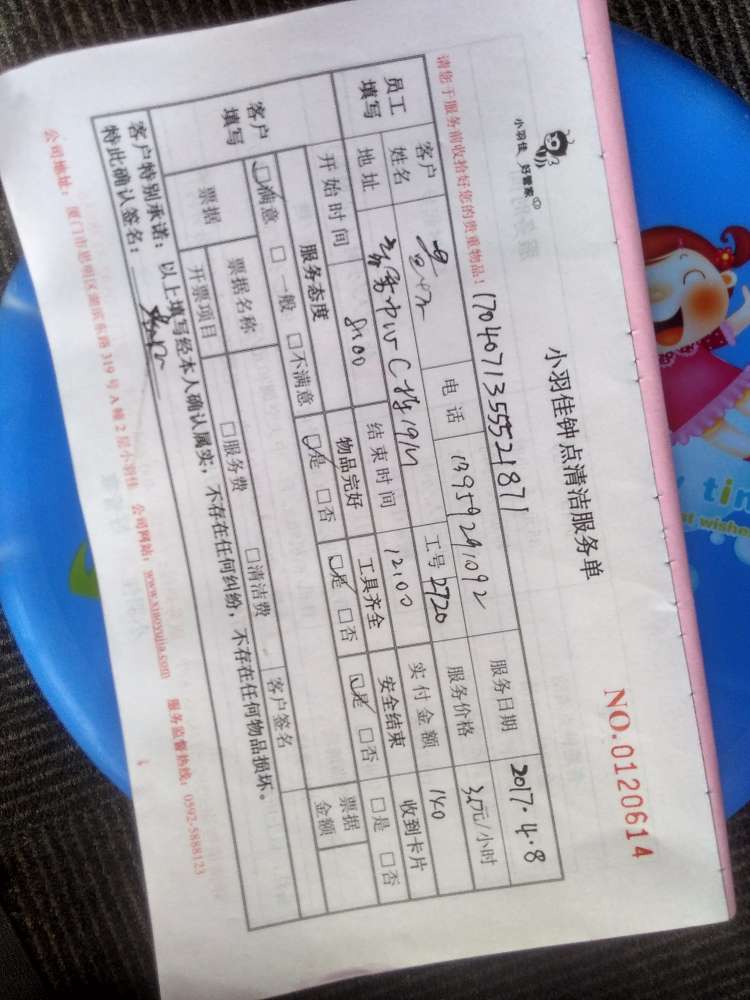 小羽佳钟点清洁服务单
NO.0120614
小羽佳 好管家
请您于服务前收拾好您的贵重物品!
1704071355521871
员工填写
客户姓名
电话 13959291092
服务日期 2017.4.8
地址 商务中心C栋19M
工号 2720
服务价格 元/小时
开始时间 8:00
结束时间 12:00
实付金额 140
收到卡片
□是 □否
客户填写
服务态度
物品完好
工具齐全
安全结束
☑满意 □一般 □不满意
☑是 □否
☑是 □否
☑是 □否
票据
票据名称
□服务费 □清洁费
客户签名
票据金额
开票项目
客户特别承诺:以上填写经本人确认属实,不存在任何纠纷,不存在任何物品损坏。
特此确认签名:
公司地址:厦门市思明区湖滨东路319号A幢2层小羽佳 公司网站:www.xiaoyujia.com 服务监督热线:0592-5888123
y tin
st wishe